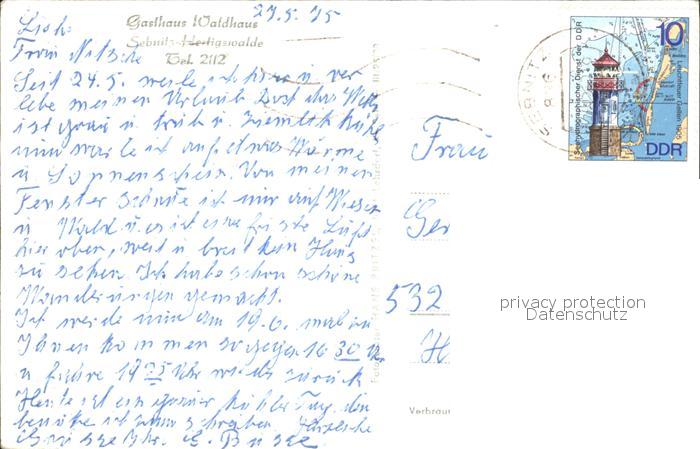 Gasthaus Waldhaus
Sebnitz-Hertigswalde
Tel. 2112
27.5.75
Liebe
Frau
Seit 24.5. weile ich hier u ver
lebe meinen Urlaub Doch das Wetter
ist grau u trüb u ziemlich kühl
nun warte ich auf etwas Wärme
u Sonnenschein. Von meinem
Fenster schaute ich nur auf Wiesen
u Wald u es ist eine frische Luft
hier oben, weit u breit kein Haus
zu sehen. Ich habe schon schöne
Wanderungen gemacht.
Ich werde nun am 19.6. mal zu
Ihnen kommen so gegen 16 30 Uhr
u fahre 19 25 Uhr wieder zurück
Heute ist ein ganz kühler Tag, den
benütze ich zum schreiben Herzliche
Grüsse Ihr. E. Busse
Frau
Ger
532
H
Verbrau
10
DDR
Seehydrographischer Dienst der DDR
SEBNITZ
privacy protection
Datenschutz